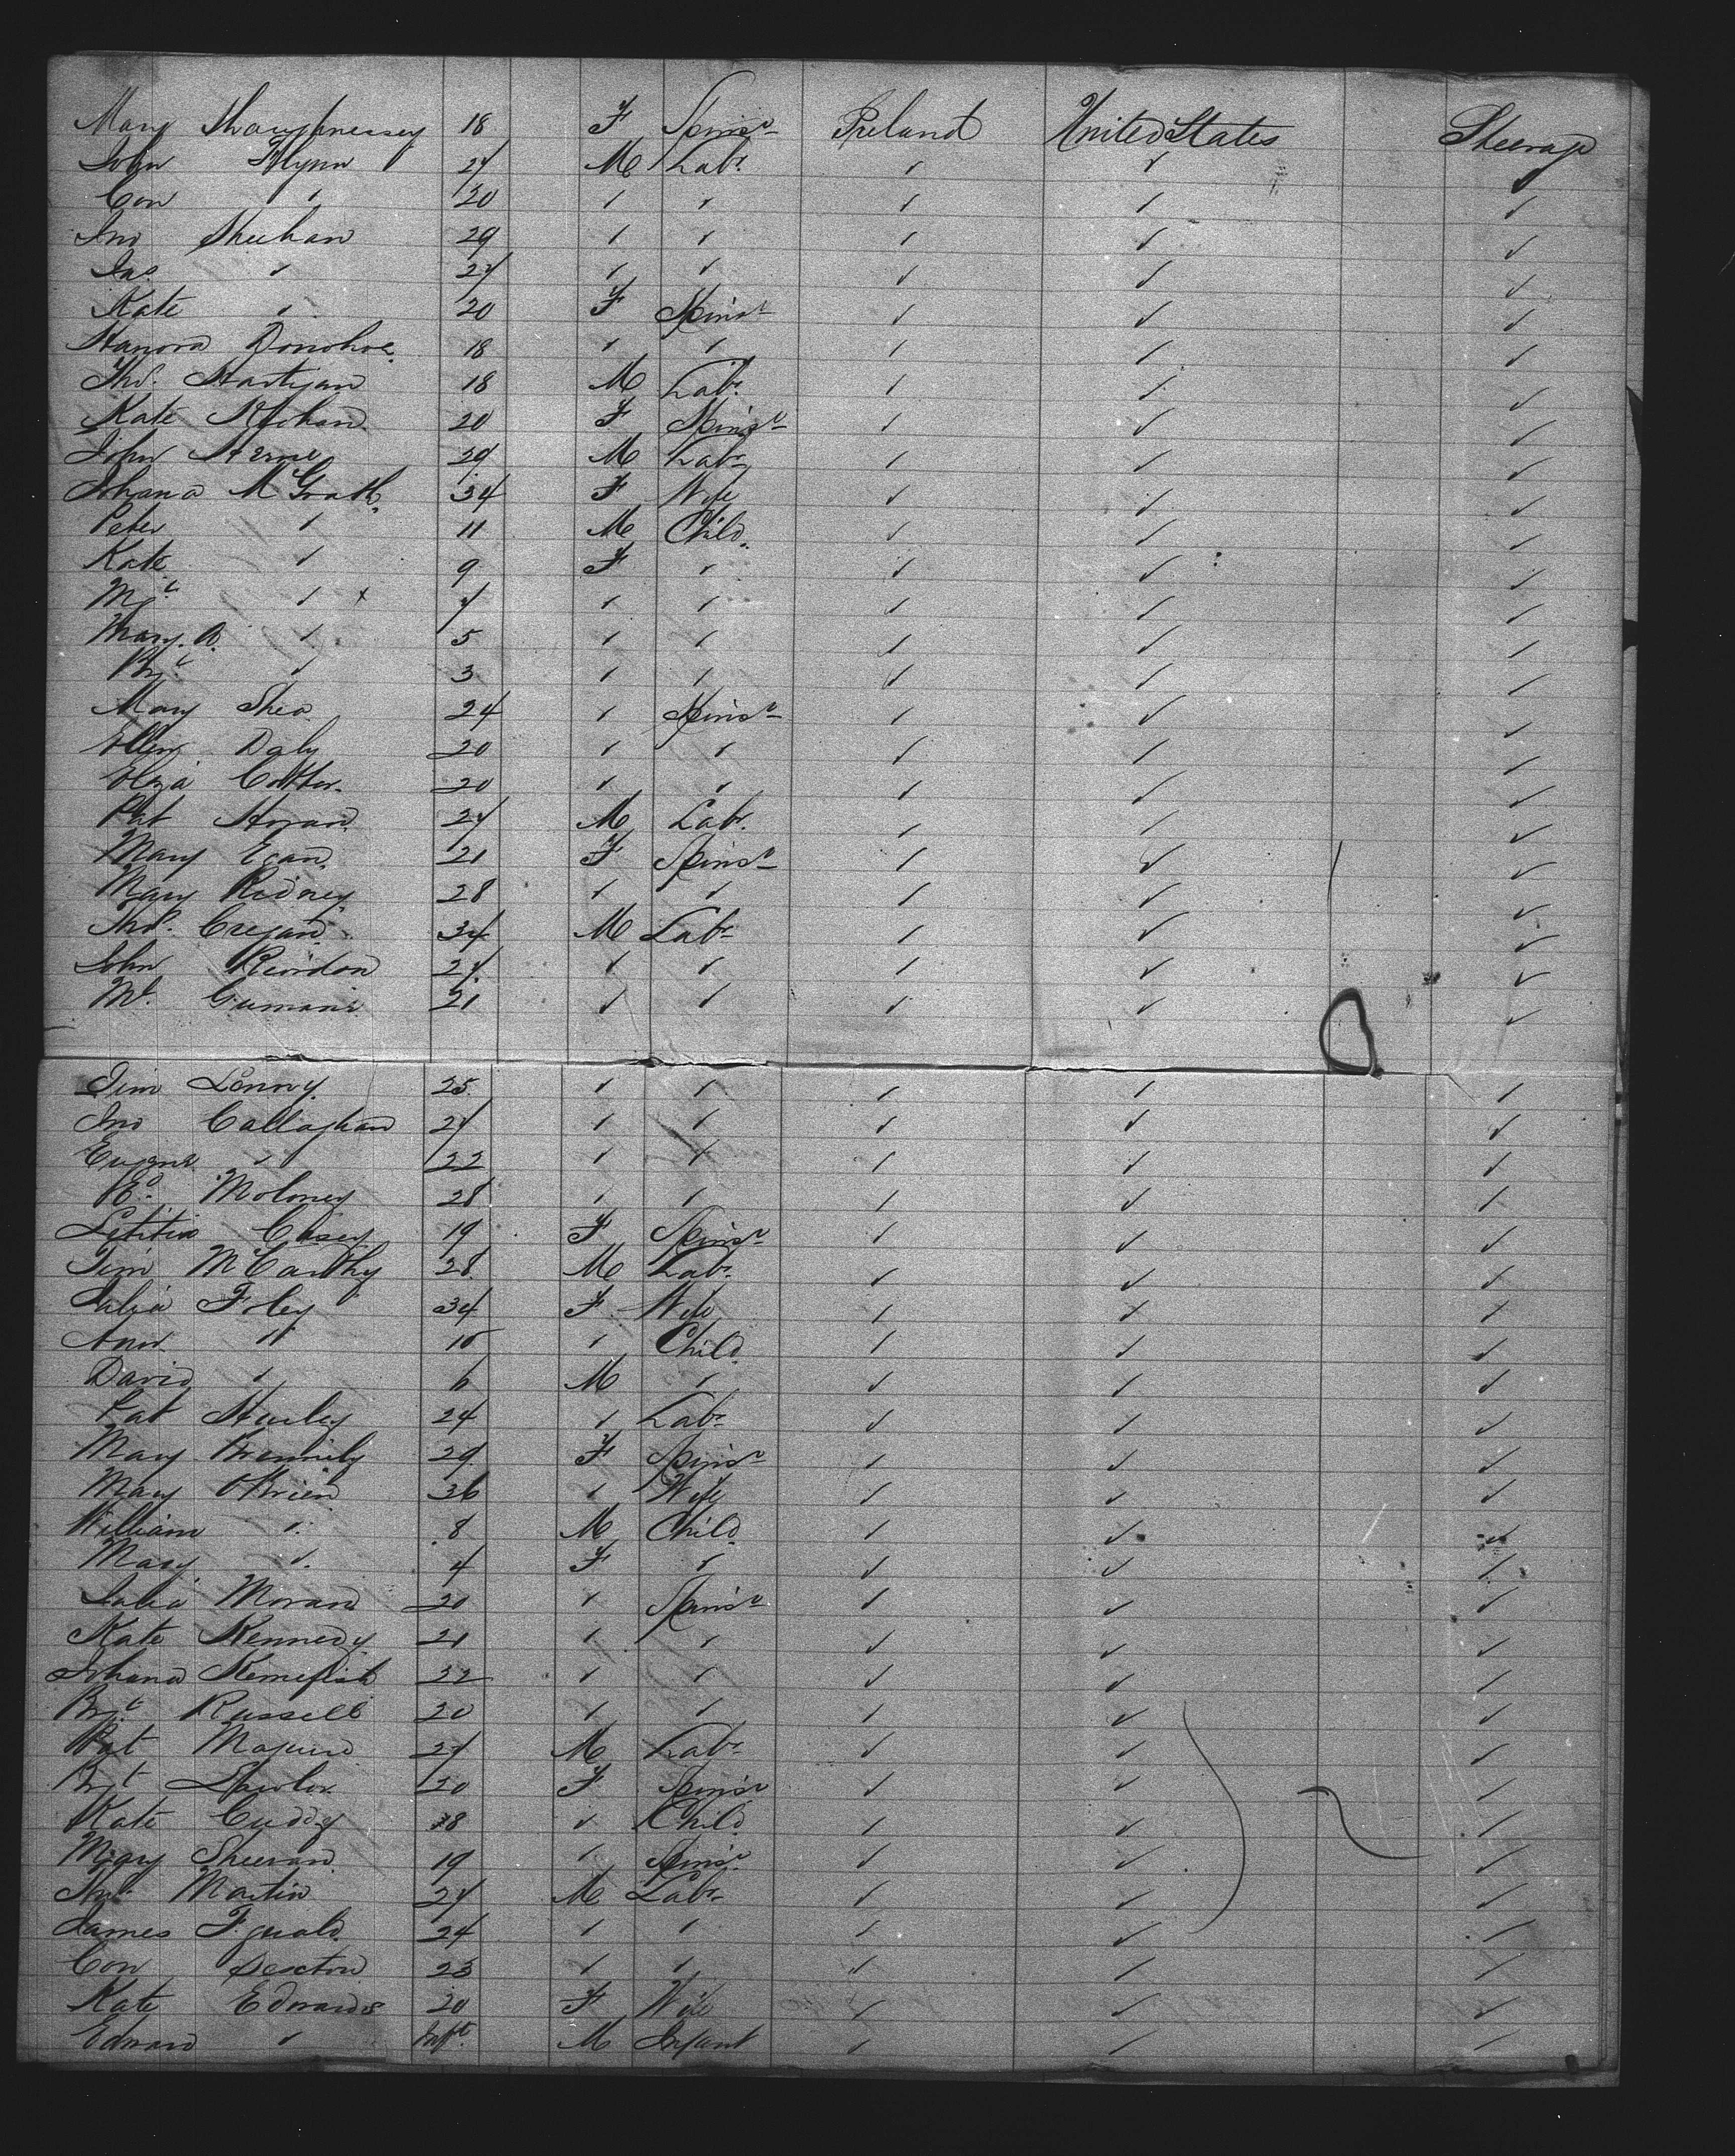 Mary Shaughnessey 18 F Spinsr Ireland United States Steerage
John Flynn 27 M Labr ✓ ✓ ✓
Con ✓ 20 ✓ ✓ ✓ ✓ ✓
Jno Sheehan 29 ✓ ✓ ✓ ✓ ✓
Jas ✓ 27 ✓ ✓ ✓ ✓ ✓
Kate ✓ 20 F Spinsr ✓ ✓ ✓
Hanora Donohoe 18 ✓ ✓ ✓ ✓ ✓
Thos. Hartigan 18 M Labr ✓ ✓ ✓
Kate 20 F Spinsr ✓ ✓ ✓
John 29 M Labr ✓ ✓ ✓
Johana McGrath 34 F Wife ✓ ✓ ✓
Peter ✓ 11 M Child ✓ ✓ ✓
Kate ✓ 9 F ✓ ✓ ✓ ✓
Mgt ✓ x 7 ✓ ✓ ✓ ✓ ✓
Mary. A. ✓ 5 ✓ ✓ ✓ ✓ ✓
Bgt ✓ 3 ✓ ✓ ✓ ✓ ✓
Mary Shea 24 ✓ Spinsr ✓ ✓ ✓
Ellen Daly 20 ✓ ✓ ✓ ✓ ✓
Eliza Cotter 20 ✓ ✓ ✓ ✓ ✓
Pat Horan 27 M Labr ✓ ✓ ✓
Mary Egan 21 F Spinsr ✓ ✓ ✓
Mary Rodney 28 ✓ ✓ ✓ ✓ ✓
Thos. Cregan 34 M Labr ✓ ✓ ✓
John Riordon 27 ✓ ✓ ✓ ✓ ✓
Ml. 21 ✓ ✓ ✓ ✓ ✓
Tim 25 ✓ ✓ ✓ ✓ ✓
Jno Callaghan 27 ✓ ✓ ✓ ✓ ✓
Eugene ✓ 22 ✓ ✓ ✓ ✓ ✓
Ed Moloney 28 ✓ ✓ ✓ ✓ ✓
Letitia Casey 19 F Spinsr ✓ ✓ ✓
Tim McCarthy 28 M Labr ✓ ✓ ✓
Julia Foley 34 F Wife ✓ ✓ ✓
Ann " 10 ✓ Child ✓ ✓ ✓
David ✓ 6 M ✓ ✓ ✓ ✓
Pat Hurley 24 ✓ Labr ✓ ✓ ✓
Mary 29 F Spinsr ✓ ✓ ✓
Mary O'Brien 36 ✓ Wife ✓ ✓ ✓
William ✓ 8 M Child ✓ ✓ ✓
Mary ✓ 4 F ✓ ✓ ✓ ✓
Julia Moran 20 ✓ Spinsr ✓ ✓ ✓
Kate Kennedy 21 ✓ ✓ ✓ ✓ ✓
Johana 22 ✓ ✓ ✓ ✓ ✓
Bgt Russell 20 ✓ ✓ ✓ ✓ ✓
Pat Maguire 27 M Labr ✓ ✓ ✓
Bgt Lawlor 20 F Spinsr ✓ ✓ ✓
Kate Cuddy 8 ✓ Child ✓ ✓ ✓
Mary Sheeran 19 ✓ Spinsr ✓ ✓ ✓
Martin 27 M Labr ✓ ✓ ✓
James F.gerald 24 ✓ ✓ ✓ ✓ ✓
Con Sexton 23 ✓ ✓ ✓ ✓ ✓
Kate Edwards 20 F Wife ✓ ✓ ✓
Edward ✓ Inft. M Infant ✓ ✓ ✓